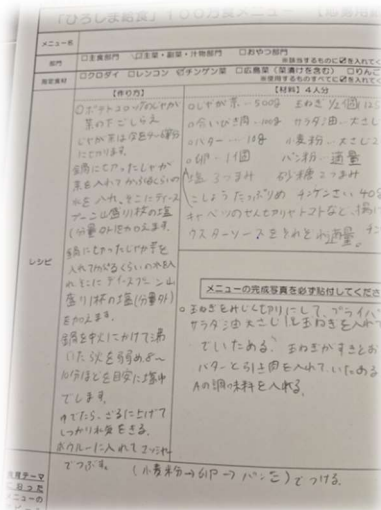 「ひろしま給食」100万食メニュー
メニュー名
部門
□主食部門 ☑主菜・副菜・汁物部門 □おやつ部門
※該当するものに☑を入れてく
指定食材
□クロダイ □レンコン ☑チンゲン菜 □広島菜(菜漬けを含む) □りんご
※使用するものすべてに☑を入れてく
レシピ
【作り方】
○ポテトコロッケのじゃが
芋の下ごしらえ
じゃが芋は
に切ります。
鍋に切ったじゃが
芋を入れてかぶるくらいの
水を入れ、そこにテイス
プーン山盛り1杯の塩
(分量外)を加えます。
鍋に切ったじゃが芋を
入れてかぶるくらいの水を入
れ、そこにティースプーン山
盛り1杯の塩(分量外)
を加えます。
鍋を中火にかけて沸
いたら火を弱め、8〜
10分ほどを目安に塩ゆ
でします。
ゆでたら、ざるに上げて
しっかり水気をきる。
ボウルに入れて
でつぶす。
【材料】4人分
○じゃが芋…500g 玉ねぎ 1/2個
○合いびき肉…100g サラダ油…大さじ
○バター…10g 小麦粉…大さじ2
○卵…1個 パン粉…適量
塩 3つまみ 砂糖 2つまみ
こしょう たっぷりめ チンゲン菜 40g
キャベツのせん切りやトマトなど、
ウスターソース をそれぞれ適量
メニューの完成写真を必ず貼付してくださ
○玉ねぎをみじん切りにして、フライパ
サラダ油大さじ1を玉ねぎを入れ
ていためる。玉ねぎがすきとお
バターとひき肉を入れていためる
Aの調味料を入れる。
(小麦粉→卵→パン粉)をつける。